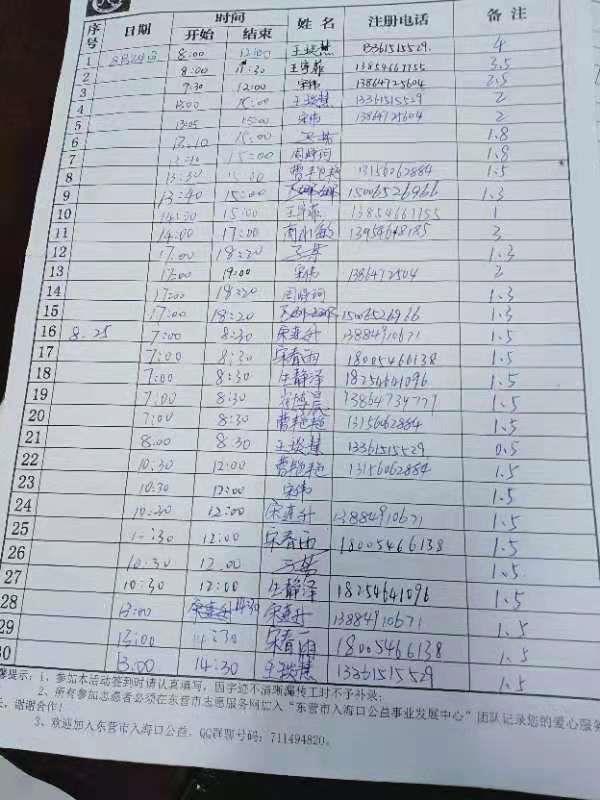 序号 日期 时间 开始 结束 姓名 注册电话 备注
1 8月24日 8:00 12:00 王琰慧 13361515529 4
2 8:00 11:30 王宇菲 13854667755 3.5
3 9:30 12:00 宋伟 13864725604 2.5
4 13:00 15:00 王琰慧 13361515529 2
5 13:05 15:00 宋伟 13864725604 2
6 13:10 15:00 1.8
7 13:10 15:00 周晴词 1.8
8 13:30 15:00 曹艳艳 13156062884 1.5
9 13:40 15:00 15006526966 1.3
10 14:00 15:00 王宇菲 13854667755 1
11 14:00 17:00 13954648185 3
12 17:00 18:20 1.3
13 17:00 19:00 宋伟 1386472504 2
14 17:00 18:20 周晴词 1.3
15 17:00 18:20 15006526966 1.3
16 8.25 7:00 8:30 宋连升 13884910671 1.5
17 7:00 8:30 宋春雨 18005466138 1.5
18 7:00 8:30 任静泽 18254641096 1.5
19 7:00 8:30 13864734777 1.5
20 7:00 8:30 曹艳艳 13156062884 1.5
21 8:00 8:30 王琰慧 13361515529 0.5
22 10:30 12:00 曹艳艳 13156062884 1.5
23 10:30 12:00 宋伟 1.5
24 10:30 12:00 宋连升 13884910671 1.5
25 10:30 12:00 宋春雨 18005466138 1.5
26 10:30 12:00 1.5
27 10:30 12:00 任静泽 18254641096 1.5
28 13:00 宋连升 14:30 宋连升 13884910671 1.5
29 13:00 14:30 宋春雨 18005466138 1.5
30 13:00 14:30 王琰慧 13361515529 1.5
馨提示：1、参加本活动签到时请认真填写，因字迹不清晰漏传工时不予补录；
2、所有参加志愿者必须在东营市志愿服务网加入“东营市入海口公益事业发展中心”团队记录您的爱心服务
，谢谢合作！
3、欢迎加入东营市入海口公益，QQ群聊号码：711494820。